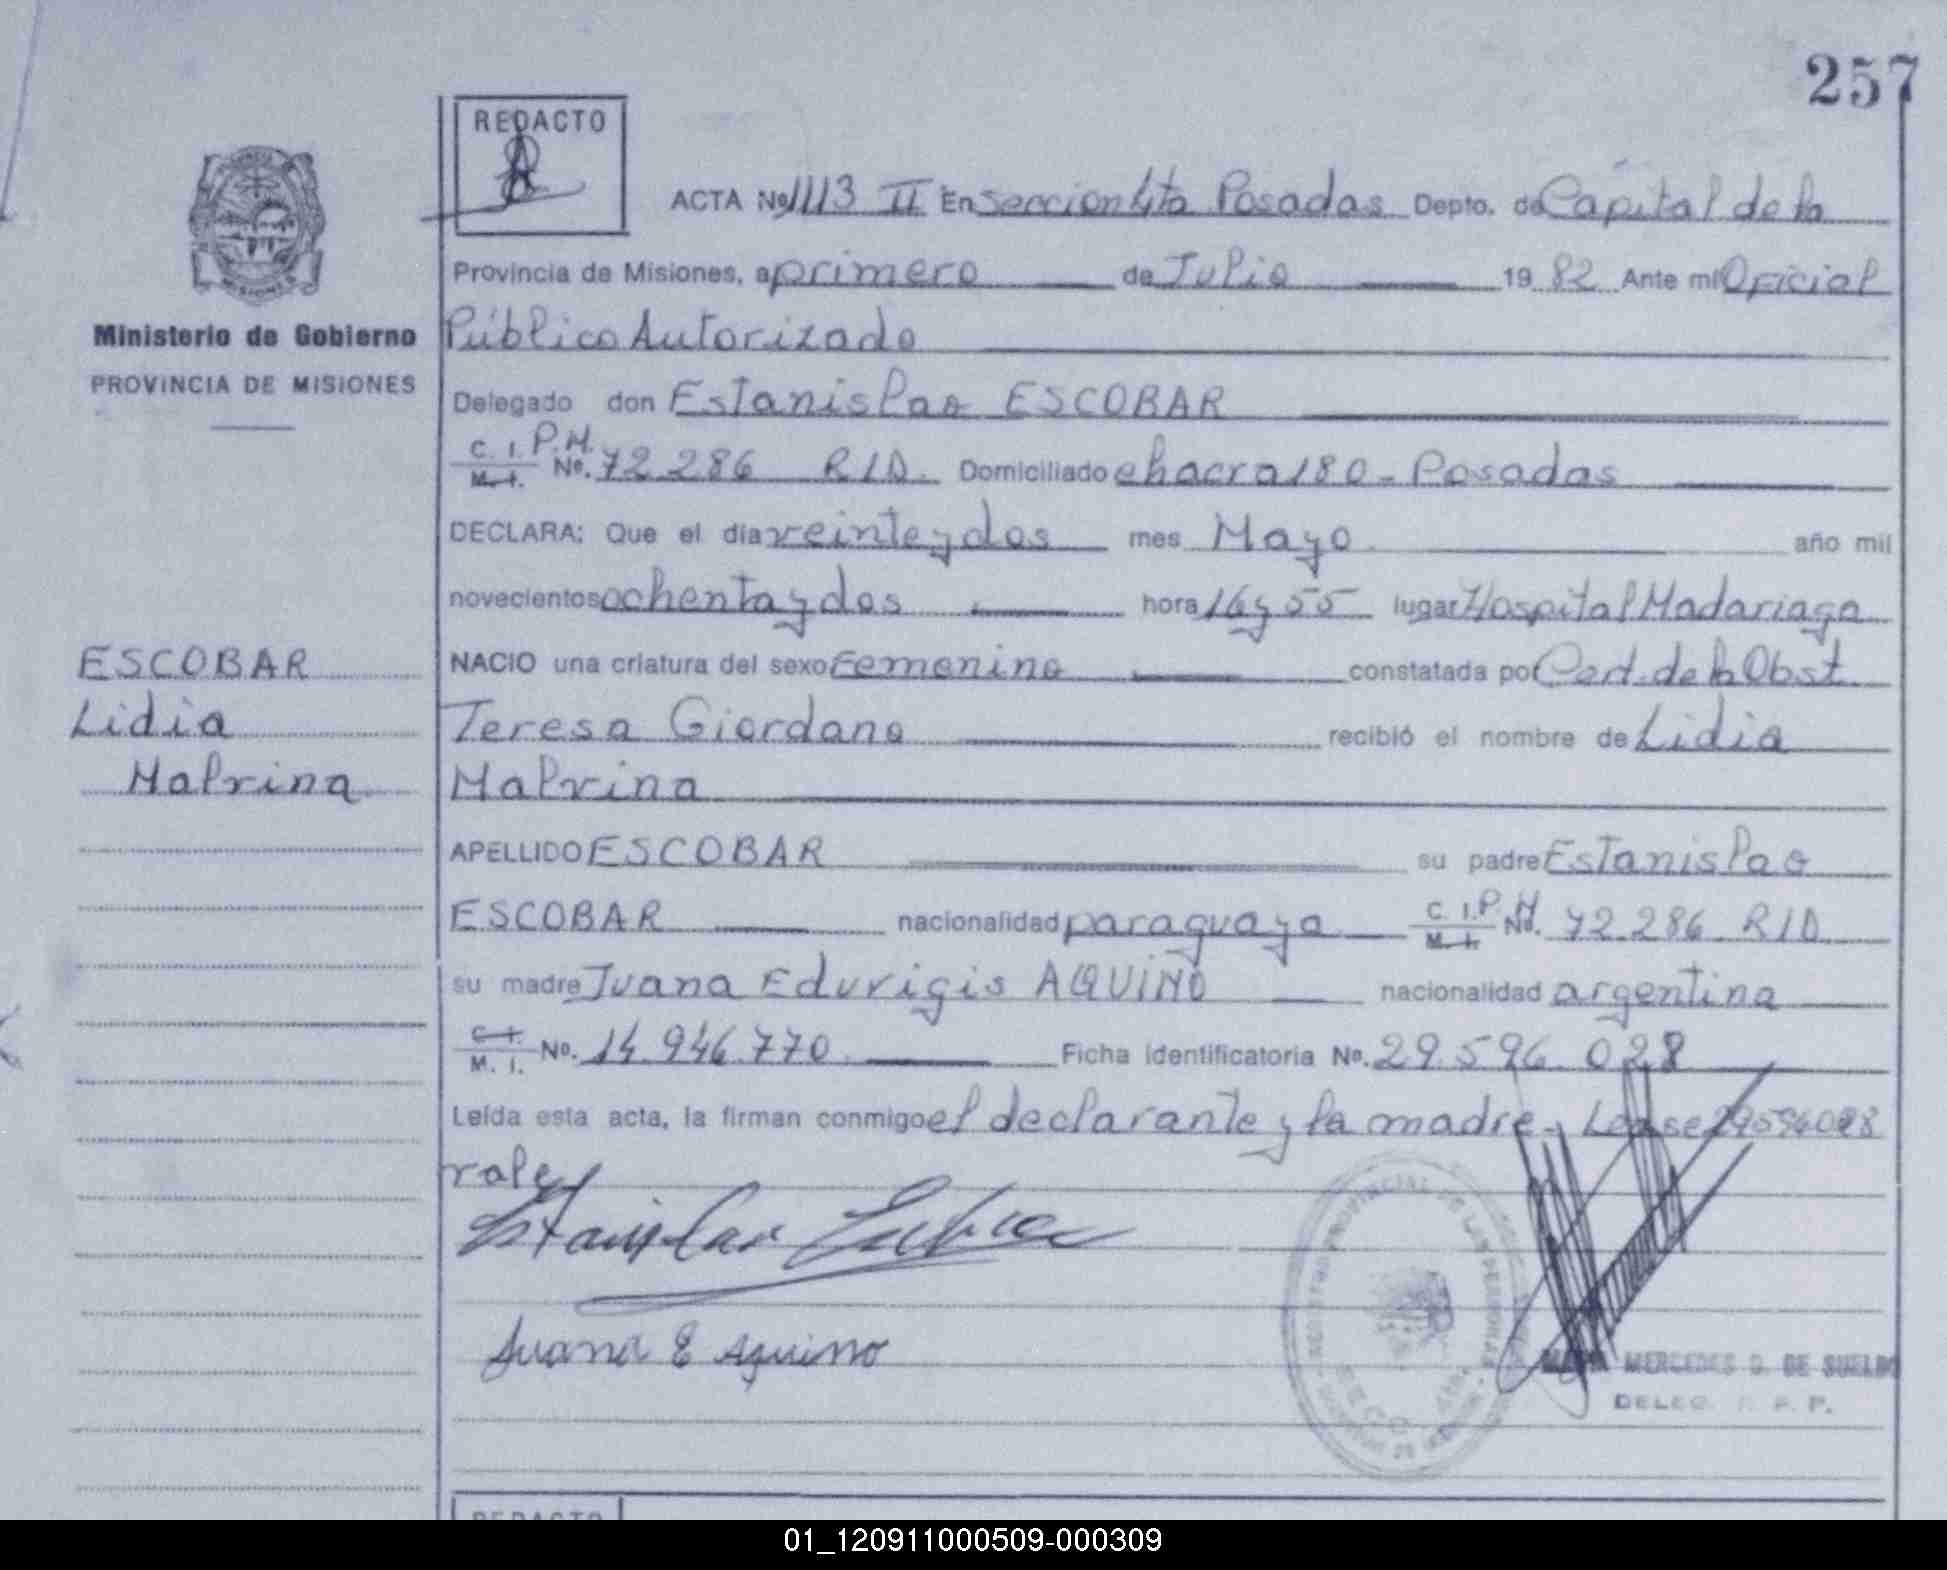 257
REDACTO
ACTA Nº 1113 II En seccion 4ta Posadas Depto. de Capital de la
Provincia de Misiones, a primero de Julio 1982 Ante mí Oficial
Ministerio de Gobierno
PROVINCIA DE MISIONES
Público Autorizado
Delegado don Estanislao ESCOBAR
C. I. M. I. P.N. No. 72.286 R/D. Domiciliado chacra 180 - Posadas
DECLARA: Que el día veinte y dos mes Mayo año mil
novecientos ochenta y dos hora 16 y 55 lugar Hospital Madariaga
ESCOBAR
Lidia
Malvina
NACIO una criatura del sexo Femenino constatada por Cert. de la Obst.
Teresa Giordano recibió el nombre de Lidia
Malvina
APELLIDO ESCOBAR su padre Estanislao
ESCOBAR nacionalidad paraguaya C. I. M. I. P.N. No. 72.286 R/D
su madre Juana Eduvigis AQUINO nacionalidad argentina
C. I. M. I. No. 14.946.770. Ficha identificatoria No. 29.596.028
Leída esta acta, la firman conmigo el declarante y la madre. Lease 29596028
vale
Estanislao Escobar
Juana E Aquino
REGISTRO PROVINCIAL DE LAS PERSONAS
MERCEDES D. DE SUELDO
DELEG. R. P. P.
REDACTO
01_120911000509-000309